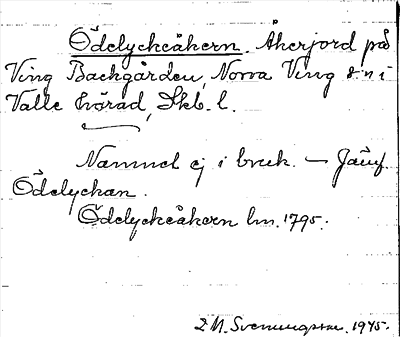 Ödelyckeåkern. Åkerjord på
Ving Backgården, Norra Ving s:n i
Valle härad, Skb. l.
Namnet ej i bruk. — Jämf.
Ödelyckan.
Ödelyckeåkern lm. 1795.
M. Svenungsson. 1945.